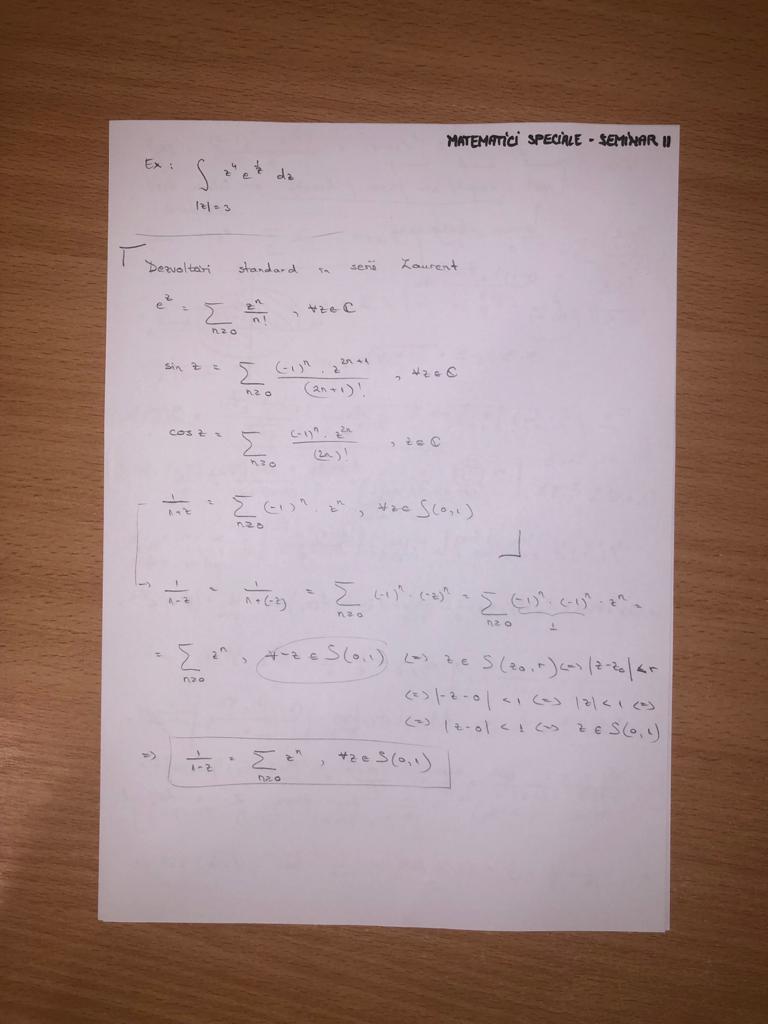 MATEMATICI SPECIALE - SEMINAR 11
Ex: ∫_{|z|=3} z⁴ e^{1/z} dz
Dezvoltări standard în serie Laurent
e^z = ∑_{n≥0} z^n/n! , ∀z∈ℂ
sin z = ∑_{n≥0} (-1)^n · z^{2n+1}/(2n+1)! , ∀z∈ℂ
cos z = ∑_{n≥0} (-1)^n · z^{2n}/(2n)! , z∈ℂ
1/(1+z) = ∑_{n≥0} (-1)^n · z^n , ∀z∈S(0,1)
→ 1/(1-z) = 1/(1+(-z)) = ∑_{n≥0} (-1)^n · (-z)^n = ∑_{n≥0} (-1)^n · (-1)^n · z^n =
1
= ∑_{n≥0} z^n , ∀-z∈S(0,1) (=) z∈S(z₀,r) (=) |z-z₀|<r
(=) |-z-0| < 1 (=) |z| < 1 (=)
(=) |z-0| < 1 (=) z∈S(0,1)
=> 1/(1-z) = ∑_{n≥0} z^n , ∀z∈S(0,1)